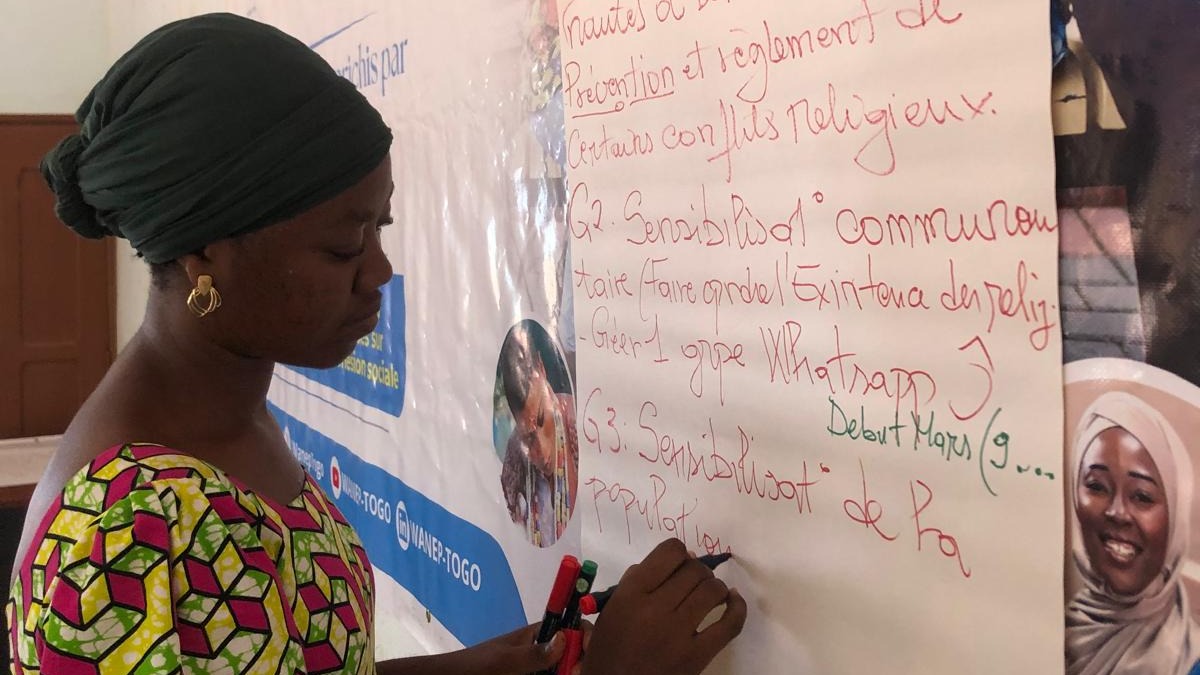 enrichis par
sur
cohésion sociale
WANEP-TOGO
WANEP-TOGO
Prévention et règlement de
Certains conflits religieux.
G2. Sensibilisat° communau
taire (Faire
- Créer 1 grpe Whatsapp
Debut Mars (9....
G3: Sensibilisat° de la
population